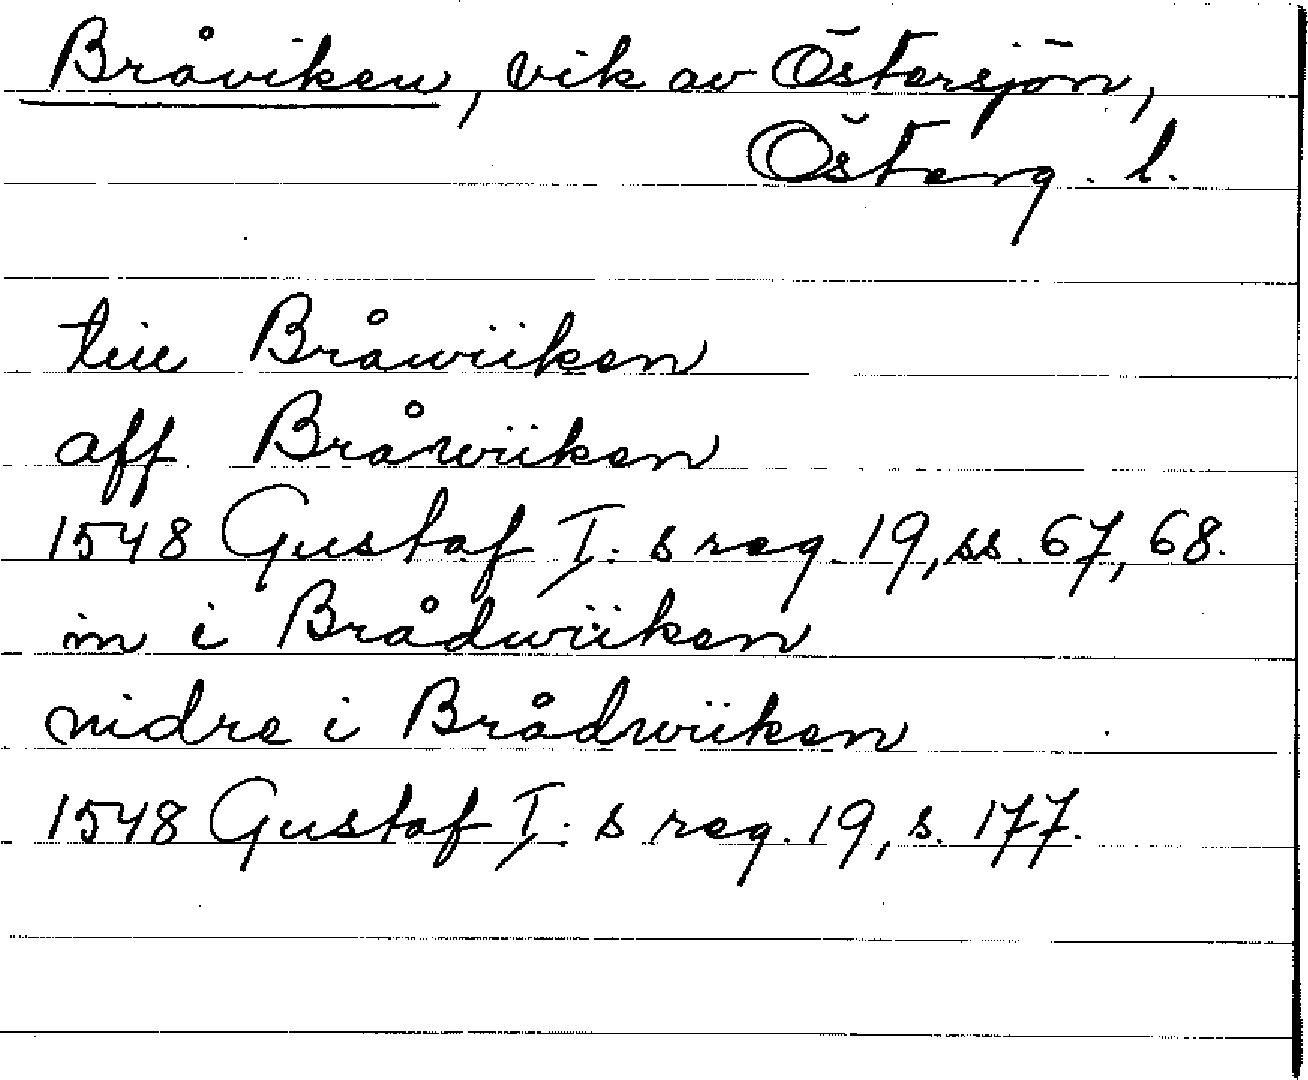 Bråviken, vik av Östersjön,
Österg. l.
till Bråwiiken
aff Bråwiiken
1548 Gustaf I:s reg. 19, ss. 67, 68.
in i Brådwiiken
nidre i Brådwiiken
1548 Gustaf I:s reg. 19, s. 177.